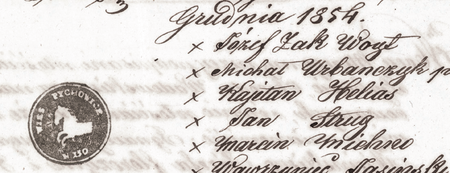 3
Grudnia 1854.
x Józef Żak Woyt
x Michał Urbańczyk p
x Kajetan Helias
x Jan Strug
x Marcin Michno
x Wawrzyniec Jasiński
WIEŚ PYCHOWICE
N 150